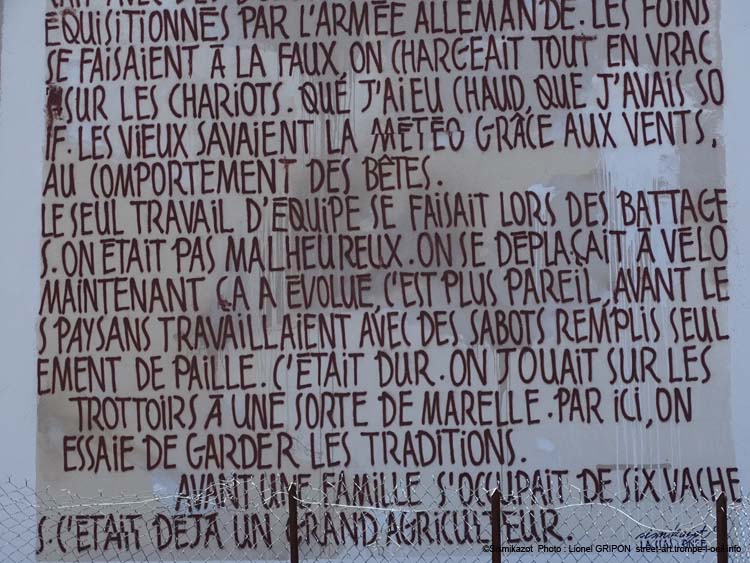 ÉQUISITIONNÉS PAR L'ARMÉE ALLEMANDE. LES FOINS
SE FAISAIENT À LA FAUX, ON CHARGEAIT TOUT EN VRAC
SUR LES CHARIOTS. QUÉ J'AI EU CHAUD, QUE J'AVAIS SO
IF. LES VIEUX SAVAIENT LA MÉTÉO GRÂCE AUX VENTS,
AU COMPORTEMENT DES BÊTES.
LE SEUL TRAVAIL D'ÉQUIPE SE FAISAIT LORS DES BATTAGE
S. ON ÉTAIT PAS MALHEUREUX. ON SE DÉPLAÇAIT À VÉLO
MAINTENANT ÇA A ÉVOLUÉ, C'EST PLUS PAREIL, AVANT LE
S PAYSANS TRAVAILLAIENT AVEC DES SABOTS REMPLIS SEUL
EMENT DE PAILLE. C'ÉTAIT DUR. ON JOUAIT SUR LES
TROTTOIRS À UNE SORTE DE MARELLE. PAR ICI, ON
ESSAIE DE GARDER LES TRADITIONS.
AVANT UNE FAMILLE S'OCCUPAIT DE SIX VACHE
S. C'ÉTAIT DÉJÀ UN GRAND AGRICULTEUR.
sismikazot
©Sismikazot Photo : Lionel GRIPON street-art.trompe-l-oeil.info